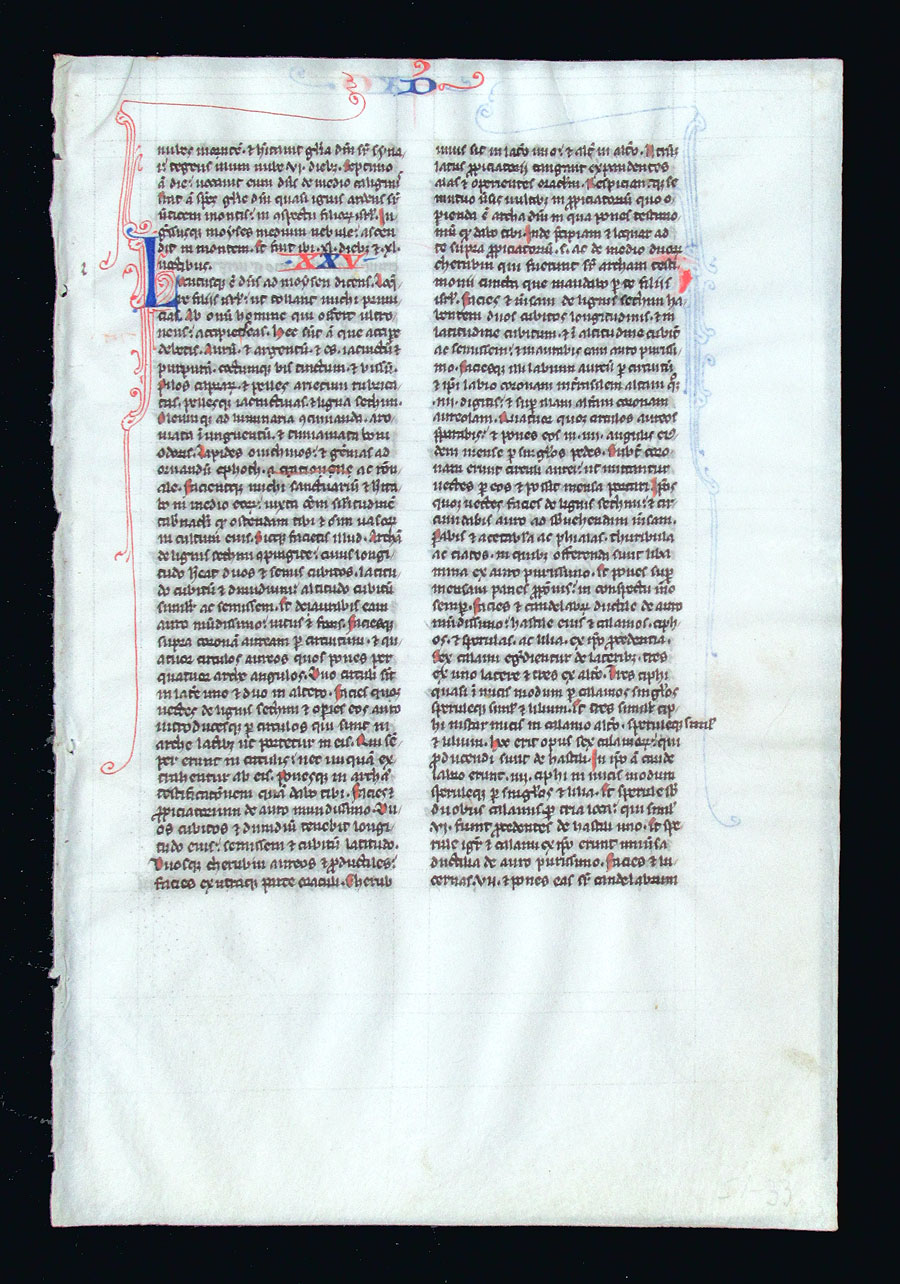 D
nubes monte. & hitauit glia dni sr syna
i tegens illum nube .vi. dieb;. Septimo
a die: uocauit eum dns de medio caliginis
Erat a spes glie dni quasi ignis ardens sr
uticem montis: in aspectu filior isrl. In
gssusq; moyses medium nebule: ascen
dit in montem. Et fuit ibi .xl. dieb; & .xl.
noctibus.
XXV
Locutusq; e dns ad moysen dicens. Loq
re filiis isrl: ut tollant michi primi
cias. Ab omi homine qui offert ultro
neus: accipietis eas. Hec sut a que accipe
debetis. Auru. & argentu. & es. iacinctu &
purpura. coctumq; bis tinctum. & bissu.
Pilos caprar. & pelles arietum rubrica
tas. pellesq; iacinctinas. & ligna sethim.
Oleumq; ad luminaria concinnanda. aro
mata i unguentu. & timiamata boni
odoris. Lapides onichinos: & gemas ad
ornandu ephoth. a ac rono
ale. Facientq; michi sanctuariu & hita
bo in medio eor: iuxta oem similitudine
tabnacli q ostendam tibi & oium uasor
in cultum eius. Sicq; facietis illud. Archa
de lignis sethim opingite: cuius longi
tudo heat duos & semis cubitos. latitu
do cubitu & dimidium: altitudo cubitu
simil ac semissem. Et deaurabis eam
auro mudissimo: intus & foris. Faciesq;
supra corona auream p circuitum. & qu
atuor circulos aureos quos pones per
quatuor arche angulos. Duo circuli sit
in late uno & duo in altero. Facies quoq;
uectes de lignis sethim & opies eos auro
introducesq; p circulos qui sunt in
arche lacib; ut portetur in eis. Qui se
per erunt in circulis: nec unqua ex
trahentur ab eis. Ponesq; in archa
testificatonem qua dabo tibi. Facies &
ppiciatorium de auro mundissimo. Du
os cubitos & dimidiu tenebit longi
tudo eius: semissem & cubitu latitudo.
Duosq; cherubin aureos & pductiles:
facies ex utraq; parte oraculi. Cherub
unus sit in late uno: & alt in alto. Utruq;
latus ppiciatorii tangant expandentes
alas & operientes oraclm. Respiciantq; se
mutuo usis uultibs in ppiciatoriu quo o
pienda e archa dni in qua pones testimo
niu q dabo tibi. Inde pcipiam & loquar ad
te supra ppiciatoriu. s. ac de medio duor
cherubin qui fuerint sr archam testi
monii cuncta que mandabo p te filiis
isrl. Facies & msam de lignis sethim ha
bentem duos cubitos longitudinis. & in
latitudine cubitum. & i altitudine cubitu
ac semissem: inaurabis eam auro purissi
mo. Faciesq; illi labium aureu p circuitu
& ipi labio coronam intrasilem altam qi
.iiii. digitis: & sup illam altam coronam
aureolam. Quatuor quoq; circulos aureos
pparabis: & pones eos in .iiii. angulis ei
dem mense p singulos pedes. Subt coro
nam erunt circuli aurei: ut mittantur
uectes p eos & possit mensa portari. Ipos
quoq; uectes facies de lignis sethim: & cir
cundabis auro ad subuehendum msam.
Parabis & acetabla ac phialas. thuribula
ac ciatos. in quib; offerenda sunt liba
mina ex auro purissimo. Et pones sup
mensam panes ppois: in conspectu mo
semp. Facies & candelabr ductile de auro
mudissimo: hastile eius & calamos. ciph
os. & sperulas. ac lilia. ex ipo pcedentia.
Sex calami egdientur de laterib;. tres
ex uno latere & tres ex alto. Tres ciphi
quasi i nucis modum p calamos singlos
sperulesq; simil & lilium. Et tres simil cip
hi instar nucis in calamo alto. sperulesq; simil
& lilium. Hoc erit opus sex calamor: qui
pducendi sunt de hastili. In ipo a cande
labro erunt .iiii. ciphi in nucis modum
sperulesq; p singlos & lilia. Et sperule sb
duobus calamis p tria loca: qui simil
.vi. fiunt pcedentes de hastili uno. Et spe
rule igit & calami ex ipo erunt uniusa
ductilia de auro purissimo. Facies & lu
cernas .vii. & pones eas sr candelabrum